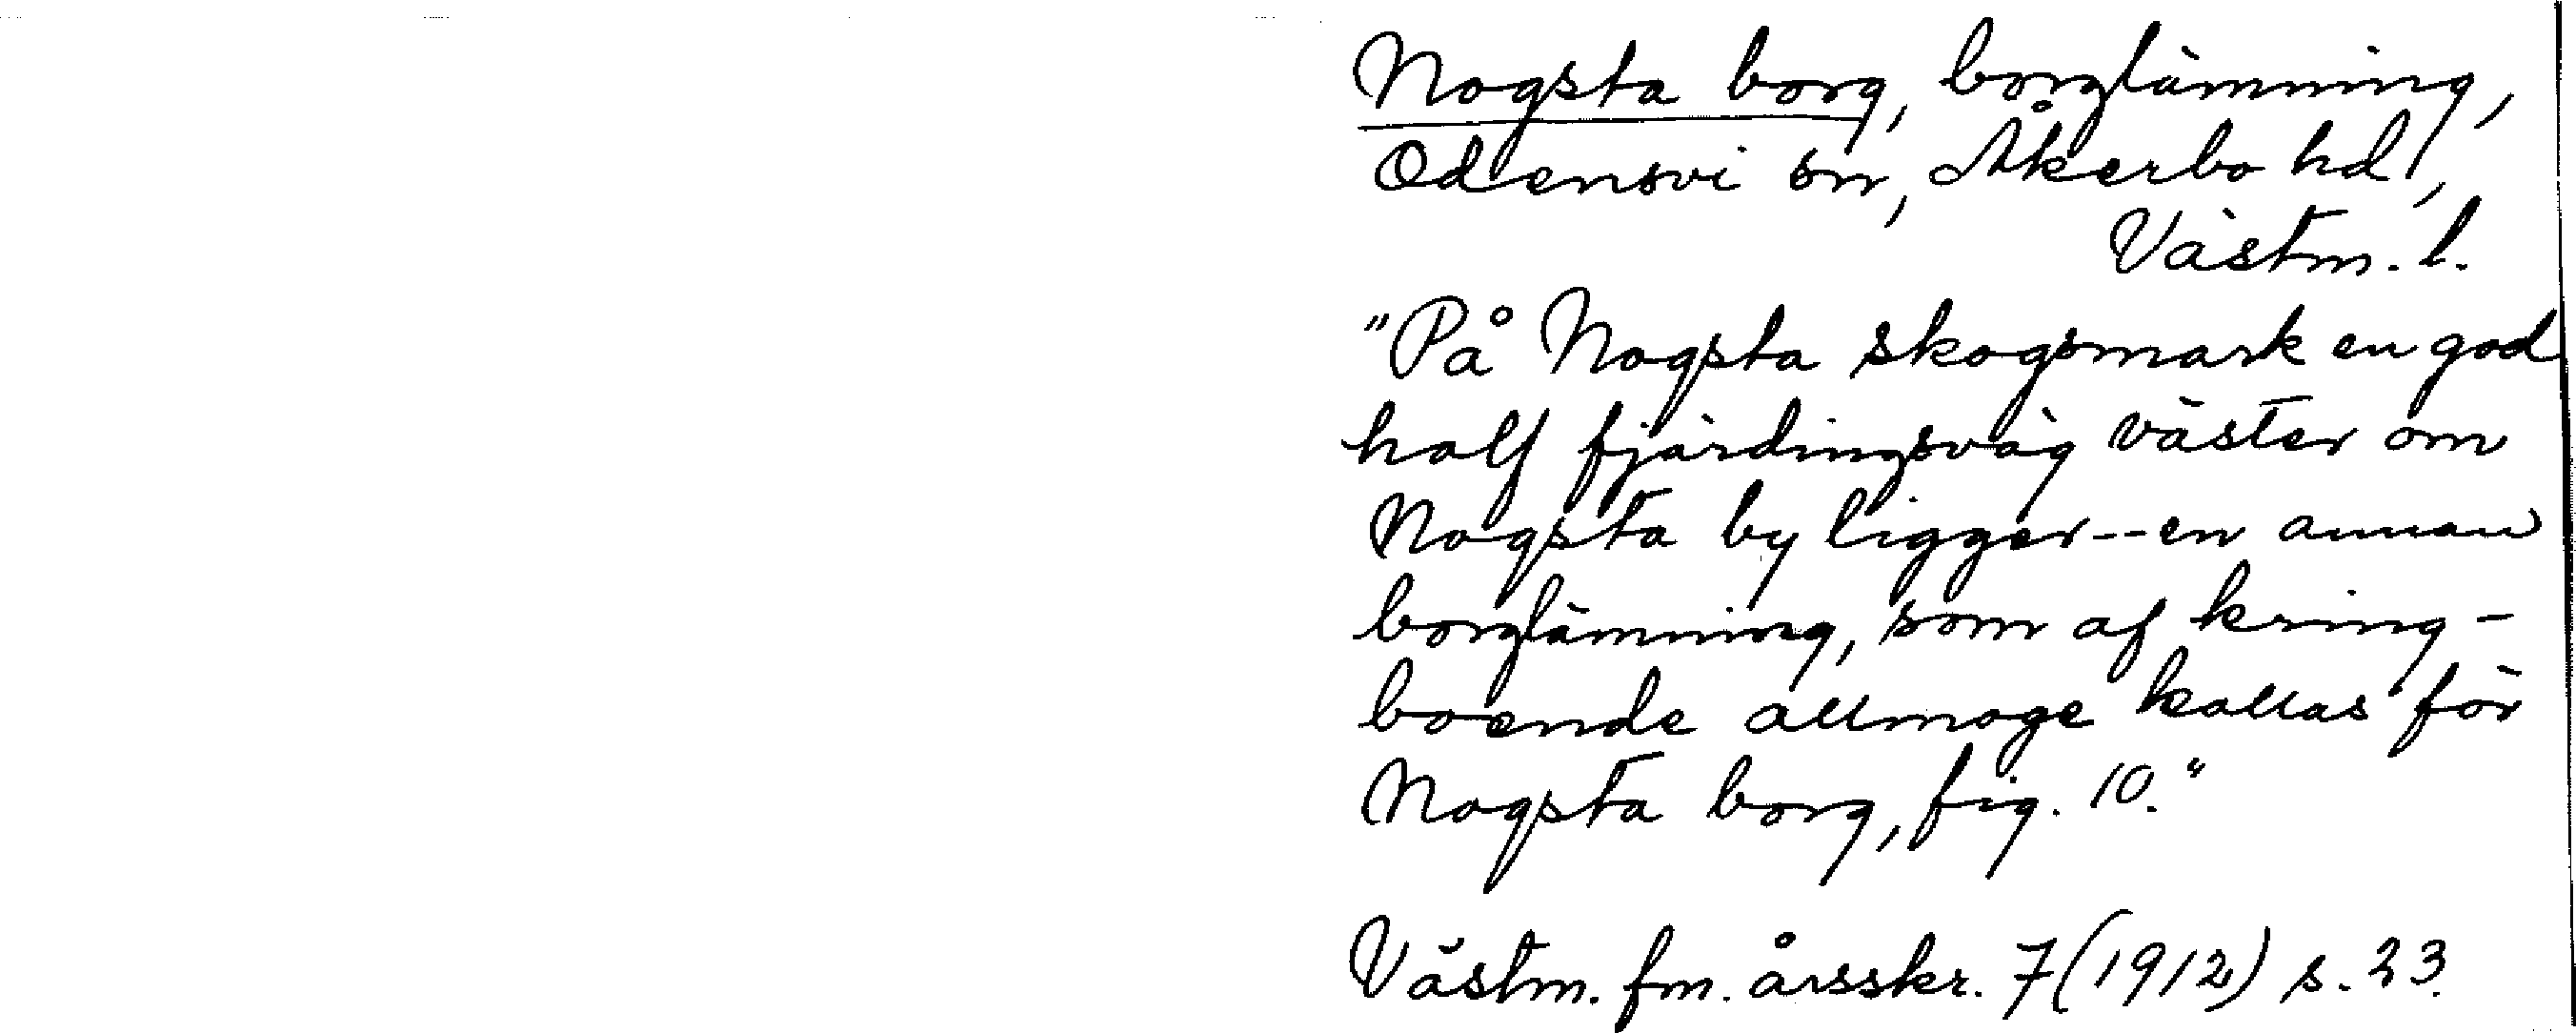 Nogsta borg, borglämning,
Odensvi sn, Åkerbo hd,
Västm. l.
"På Nogsta skogsmark en god
half fjärdingsväg väster om
Nogsta by ligger -- en annan
borglämning, som af kring-
boende allmoge kallas för
Nogsta borg, fig. 10."
Västm. fm. årsskr. 7 (1912) s. 23.